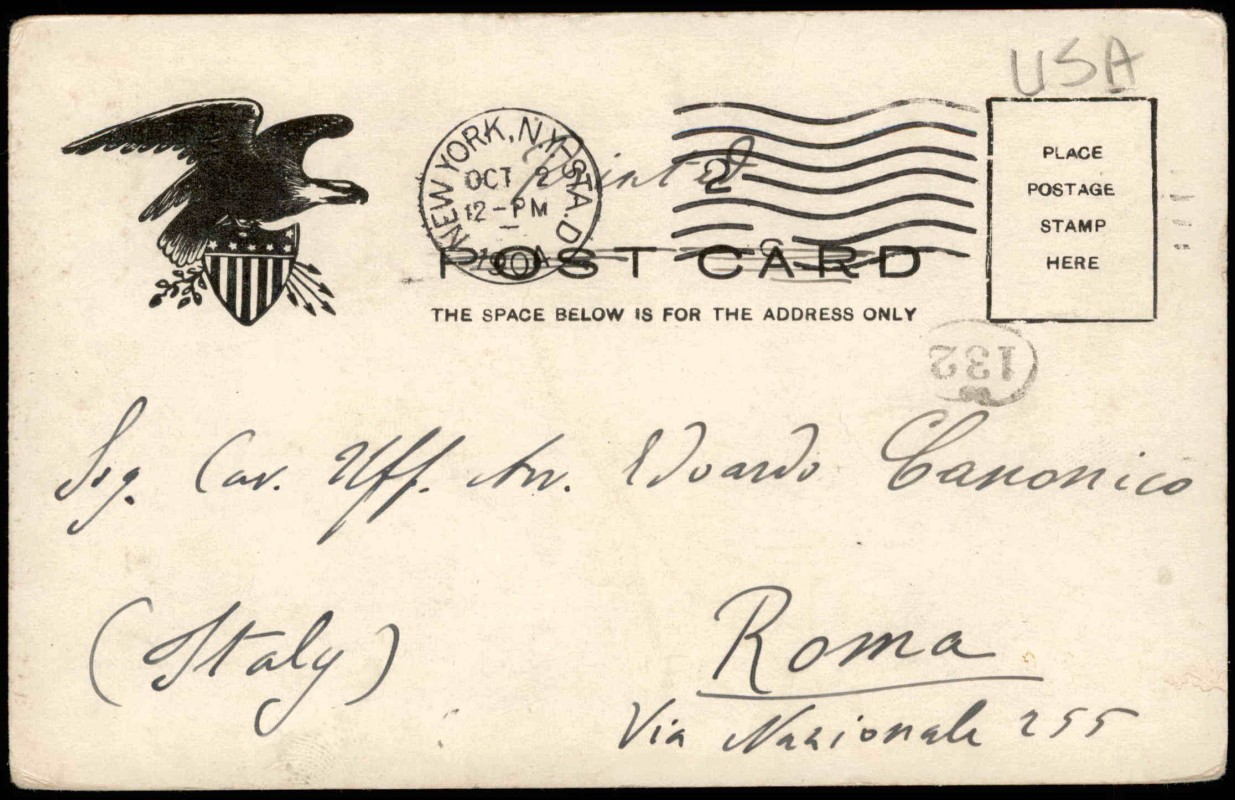 USA
NEW YORK, N.Y. STA. D
OCT 2
12-PM
190
2
printed
POST CARD
THE SPACE BELOW IS FOR THE ADDRESS ONLY
PLACE
POSTAGE
STAMP
HERE
132
Sig. Cav. Uff. Av. Edoardo Canonico
(Italy)
Roma
Via Nazionale 255